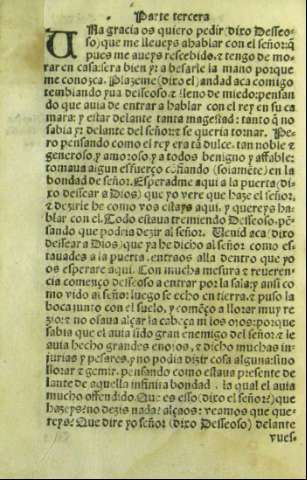 Parte tercera
Una gracia os quiero pedir (dixo Desseo-
so) que me lleueys a hablar con el señor: q̃
pues me aueys rescebido: ⁊ tengo de mo-
rar en casa: sera bien yr a besarle la mano porque
me conozca. Plazeme (dixo el) andad aca comigo
temblando yua desseoso: ⁊ lleno de miedo: pensan
do que auia de entrar a hablar con el rey en su ca
mara: y estar delante tanta magestad: tanto q̃ no
sabia yr delante del señor: ⁊ se queria tornar. Pe-
ro pensando como el rey era tã dulce. tan noble ⁊
generoso, y amoroso, y a todos benigno y affable:
tomaua algun esfuerço cõfiando (solamẽte) en la
bondad de señor. Esperadme aqui a la puerta (di-
xo dessear a Dios) que yo vere que haze el señor.
⁊ dezirle he como vos estays aqui, y quereys ha-
blar con el. Todo estaua tremiendo Desseoso, pẽ-
sando que podria dezir al señor. Uenid aca (dixo
dessear a Dios) que ya he dicho al señor como es-
tauades a la puerta. entraos alla dentro que yo
os esperare aqui. Con mucha mesura ⁊ reueren-
cia començo desseoso a entrar por la sala: y ansi co
mo vido al señor: luego se echo en tierra, ⁊ puso la
boca junto con el suelo, y comẽço a llorar muy re
zio: ⁊ no osaua alçar la cabeça ni los ojos: porque
sabia que el auia sido gran enemigo del señor: ⁊ le
auia hecho grandes enojos, ⁊ dicho muchas in-
jurias y pesares, y no podia dizir cosa alguna: sino
llorar ⁊ gemir, pensando como estaua presente de
lante de aquella infinita bondad. la qual el auia
mucho offendido. Que es esso (dixo el señor:) que
hazeys: no dezis nada: alçaos: veamos que que-
reys: Que dire yo señor (dixo Desseoso) delante
vues-